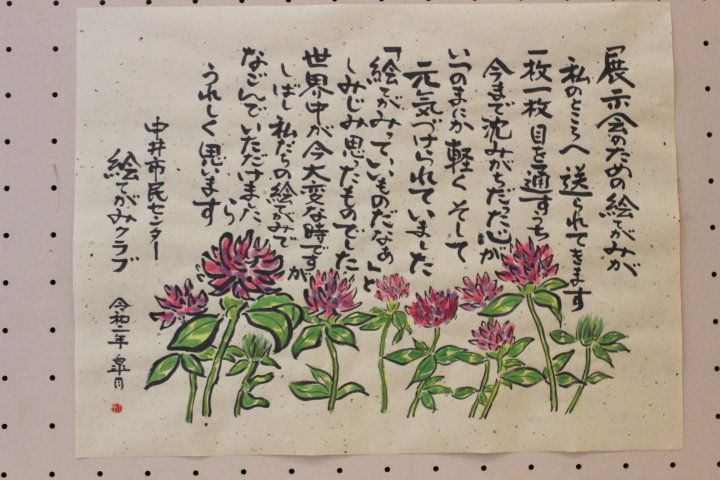 展示会のための絵てがみが
私のところへ送られてきます
一枚一枚目を通すうち
今まで沈みがちだった心が
いつのまにか軽くそして
元気づけられていました
「絵てがみっていいものだなぁ」と
しみじみ思ったものでした
世界中が今大変な時ですが
しばし私たちの絵てがみで
なごんでいただけましたら
うれしく思います
中井市民センター
絵てがみクラブ
令和二年 皐月